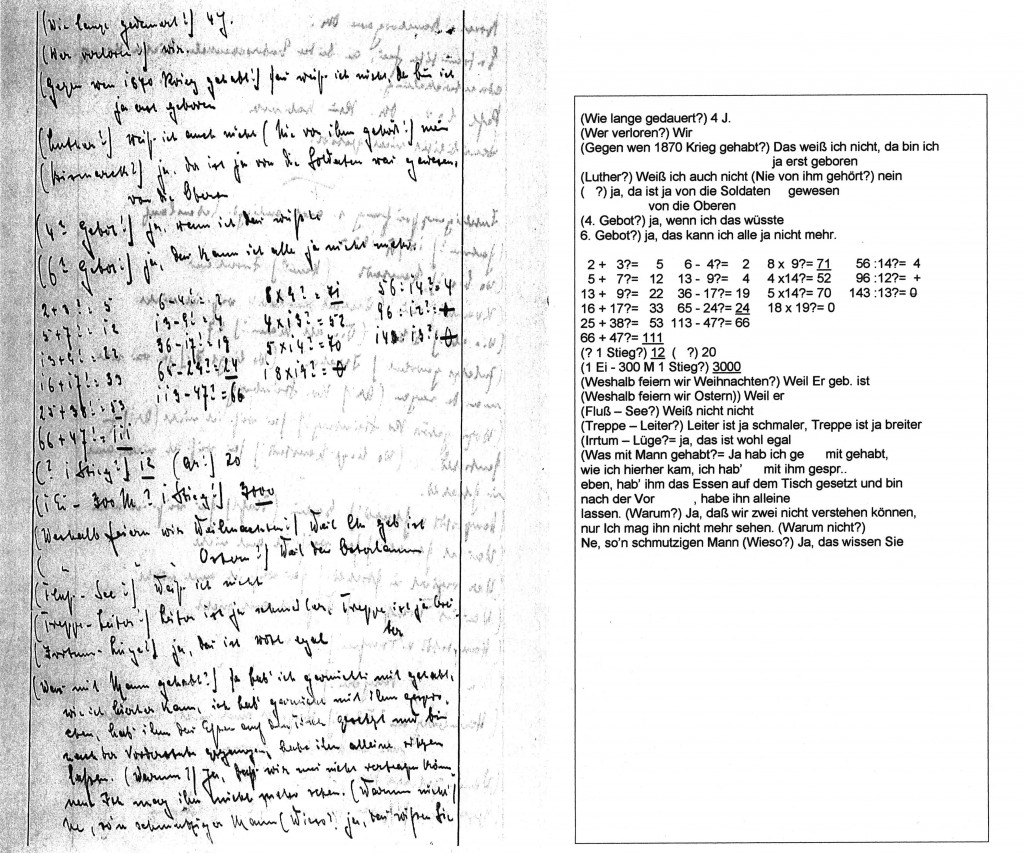 (Wie lange gedauert?) 4 J.
(Wer verloren?) wir.
(Gegen wen 1870 Krieg gehabt?) das weiß ich nicht, da bin ich
ja erst geboren
(Luther?) weiß ich auch nicht (Nie von ihm gehört?) nein
(Bismarck?) ja, da ist ja von die Soldaten was gewesen,
von die Oberen
(4. Gebot?) ja, wenn ich das wüßte
(6. Gebot?) ja, das kann ich alle ja nicht mehr.
2+3?= 5 6-4?= 2 8x9?= 71 56:14?= 4
5+7?= 12 13-9?= 4 4x13?= 52 96:12?= +
13+9?= 22 36-17?= 19 5x14?= 70 143:13?= 0
16+17?= 33 65-24?= 24 18x19?= 0
25+38?= 53 113-47?= 66
66+47?= 111
(? 1 Stieg?) 12 20
(1 Ei - 300 M ? 1 Stieg?) 3000
(Weshalb feiern wir Weihnachten?) Weil Er geb. ist
( " " Ostern?) Weil der
(Fluß - See?) Weiß ich nicht
(Treppe-Leiter?) Leiter ist ja schmaler, Treppe ist ja brei-
ter
(Irrtum-Lüge?) ja, das ist wohl egal
(Was mit Mann gehabt?) Ja hab' ich garnichts mit gehabt,
wie ich hierher kam, ich hab' garnicht mit ihm gespro-
chen, hab' ihm das Essen auf den Tisch gesetzt und bin
nach der Vorderstube gegangen, habe ihn alleine sitzen
laßen. (Warum?) Ja, daß wir zwei nicht vertragen kön-
nen. Ich mag ihn nicht mehr sehen. (Warum nicht?)
Ne, so'n schmutziger Mann (Wieso?) ja, das wissen Sie
(Wie lange gedauert?) 4 J.
(Wer verloren?) Wir
(Gegen wen 1870 Krieg gehabt?) Das weiß ich nicht, da bin ich
ja erst geboren
(Luther?) Weiß ich auch nicht (Nie von ihm gehört?) nein
( ?) ja, da ist ja von die Soldaten gewesen
von die Oberen
(4. Gebot?) ja, wenn ich das wüsste
6. Gebot?) ja, das kann ich alle ja nicht mehr.
2 + 3?= 5 6 - 4?= 2 8 x 9?= 71 56 :14?= 4
5 + 7?= 12 13 - 9?= 4 4 x14?= 52 96:12?= +
13 + 9?= 22 36 - 17?= 19 5 x14?= 70 143 :13?= 0
16 + 17?= 33 65 - 24?= 24 18 x 19?= 0
25 + 38?= 53 113 - 47?= 66
66 + 47?= 111
(? 1 Stieg?) 12 ( ?) 20
(1 Ei - 300 M 1 Stieg?) 3000
(Weshalb feiern wir Weihnachten?) Weil Er geb. ist
(Weshalb feiern wir Ostern)) Weil er
(Fluß – See?) Weiß nicht nicht
(Treppe – Leiter?) Leiter ist ja schmaler, Treppe ist ja breiter
(Irrtum – Lüge?= ja, das ist wohl egal
(Was mit Mann gehabt?= Ja hab ich ge mit gehabt,
wie ich hierher kam, ich hab' mit ihm gespr..
eben, hab' ihm das Essen auf dem Tisch gesetzt und bin
nach der Vor , habe ihn alleine
lassen. (Warum?) Ja, daß wir zwei nicht verstehen können,
nur Ich mag ihn nicht mehr sehen. (Warum nicht?)
Ne, so'n schmutzigen Mann (Wieso?) Ja, das wissen Sie